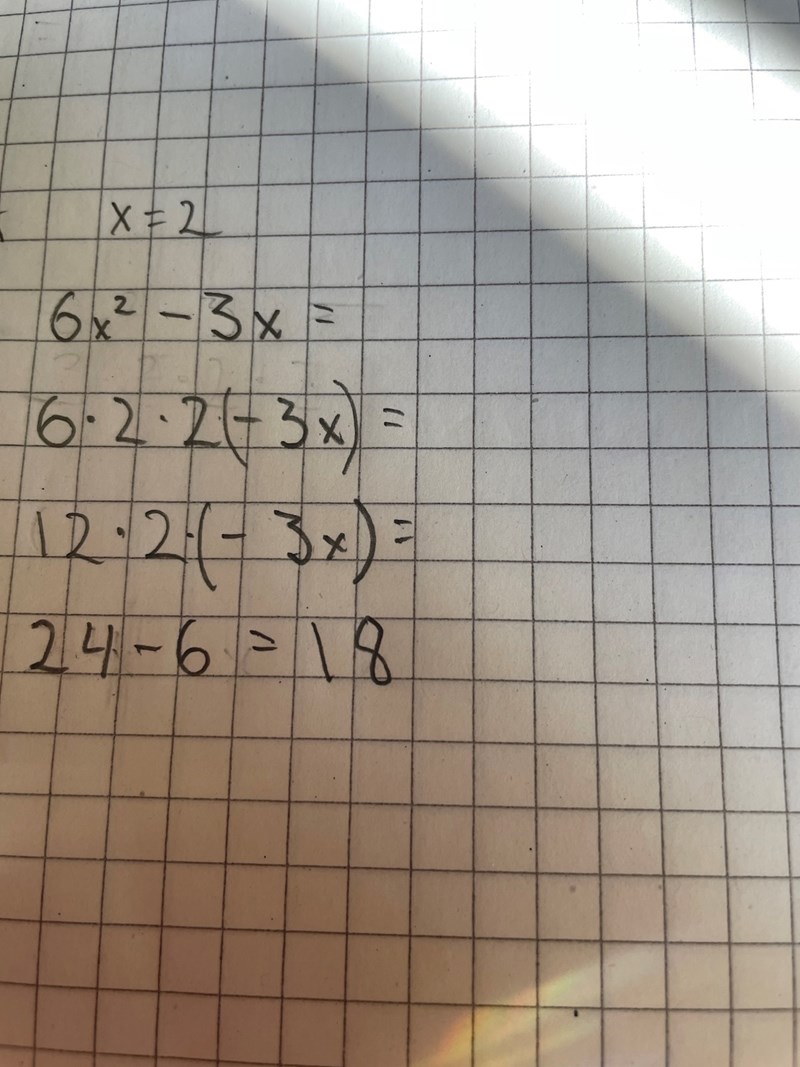 x = 2
6x² - 3x =
6·2·2(-3x) =
12·2·(-3x) =
24 - 6 = 18